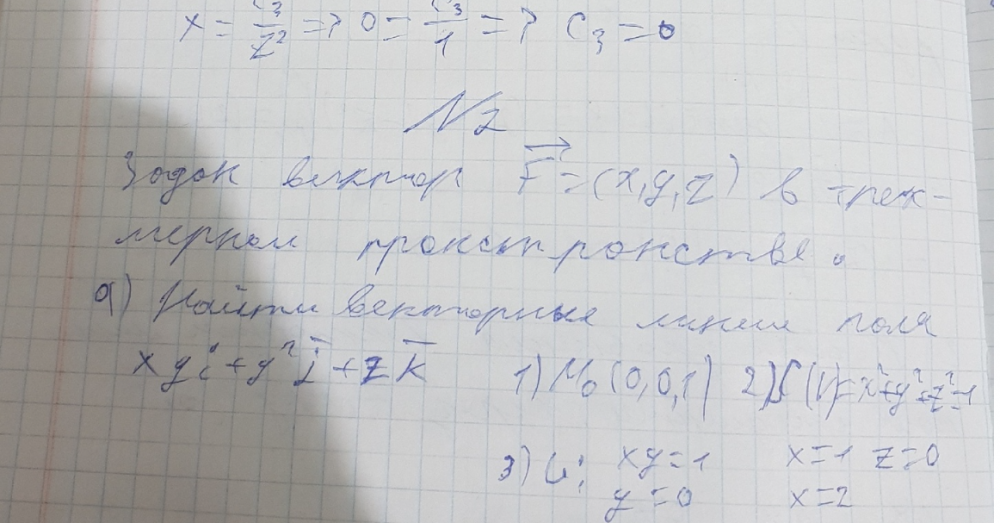 x = C₃/z² => 0 = C₃/1 => C₃ = 0
N2
Задан вектор F⃗ = (x, y, z) в трех-
мерном пространстве.
а) Найти векторные линии поля
xyi + y²j̄ + zk̄ 1) M₀(0,0,1) 2) (1) = x²+y²+z²=1
3) xy=1 x=1 z=0
y=0 x=2